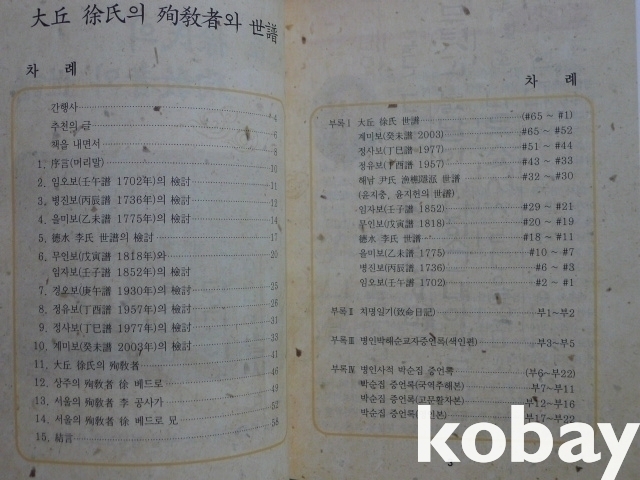 大丘 徐氏의 殉敎者와 世譜
차 례
간행사 4
추천의 글 6
책을 내면서 8
1. 序言(머리말) 10
2. 임오보(壬午譜 1702年)의 檢討 11
3. 병진보(丙辰譜 1736年)의 檢討 12
4. 을미보(乙未譜 1775年)의 檢討 14
5. 德水 李氏 世譜의 檢討 17
6. 무인보(戊寅譜 1818年)와
임자보(壬子譜 1852年)의 檢討 20
7. 경오보(庚午譜 1930年)의 檢討 25
8. 정유보(丁酉譜 1957年)의 檢討 26
9. 정사보(丁巳譜 1977年)의 檢討 31
10. 계미보(癸未譜 2003年)의 檢討 35
11. 大丘 徐氏의 殉敎者 41
12. 상주의 殉敎者 徐 베드로 46
13. 서울의 殉敎者 李 공사가 49
14. 서울의 殉敎者 徐 베드로 兄 52
15. 結言 58
차 례
부록Ⅰ 大丘 徐氏 世譜 (#65 ~ #1)
계미보(癸未譜 2003) #65 ~ #52
정사보(丁巳譜 1977) #51 ~ #44
정유보(丁酉譜 1957) #43 ~ #33
해남 尹氏 漁樵隱派 世譜 #32 ~ #30
(윤지충, 윤지헌의 世譜)
임자보(壬子譜 1852) #29 ~ #21
무인보(戊寅譜 1818) #20 ~ #19
德水 李氏 世譜 #18 ~ #11
을미보(乙未譜 1775) #10 ~ #7
병진보(丙辰譜 1736) #6 ~ #3
임오보(壬午譜 1702) #2 ~ #1
부록Ⅱ 치명일기(致命日記) 부1~부2
부록Ⅲ 병인박해순교자증언록(색인편) 부3~부5
부록Ⅳ 병인사적 박순집 증언록 (부6~부22)
박순집 증언록(국역주해본) 부7~부11
박순집 증언록(고문활자본) 부12~부16
박순집 증언록( 인본) 부17~부22
3
kobay